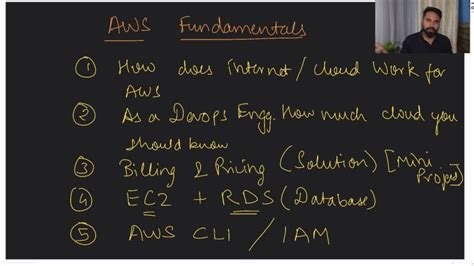 AWS Fundamentals
① How does internet / cloud Work for
AWS
② As a Devops Engg. How much cloud you
should know
③ Billing & Pricing (Solution) [Mini
Project]
④ EC2 + RDS (Database)
⑤ AWS CLI / IAM